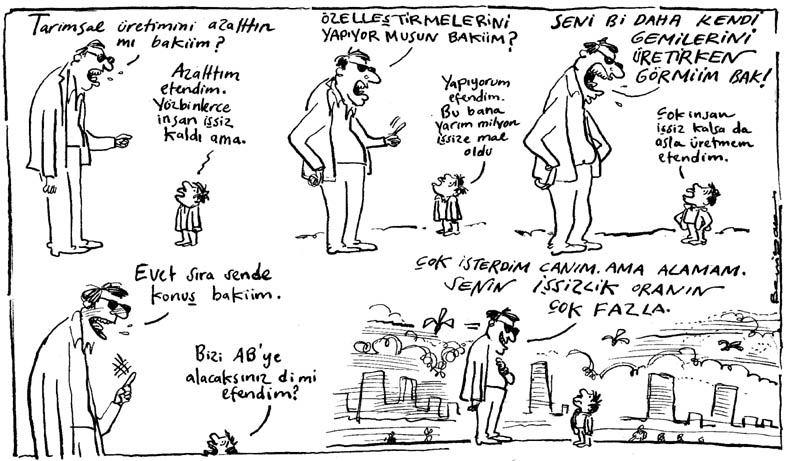 Tarımsal üretimini azalttın
mı bakiim?
Azalttım
efendim.
Yüzbinlerce
insan işsiz
kaldı ama.
ÖZELLEŞTİRMELERİNİ
YAPIYOR MUSUN BAKİİM?
Yapıyorum
efendim.
Bu bana
yarım milyon
işsize mal
oldu
SENİ Bİ DAHA KENDİ
GEMİLERİNİ
ÜRETİRKEN
GÖRMİİM BAK!
Çok insan
işsiz kalsa da
asla üretmem
efendim.
Evet sıra sende
konuş bakiim.
Bizi AB'ye
alacaksınız di mi
efendim?
ÇOK İSTERDİM CANIM. AMA ALAMAM.
SENİN İŞSİZLİK ORANIN
ÇOK FAZLA.